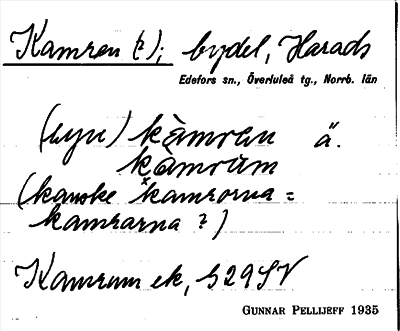 Kamren (?); bydel, Harads
Edefors sn., Överluleå tg., Norrb. län
(byn) kàmrən ä.
kàmrùm
(kanske *kamrorna =
kamrarna ?)
Kamrum ek, S29SV
GUNNAR PELLIJEFF 1935